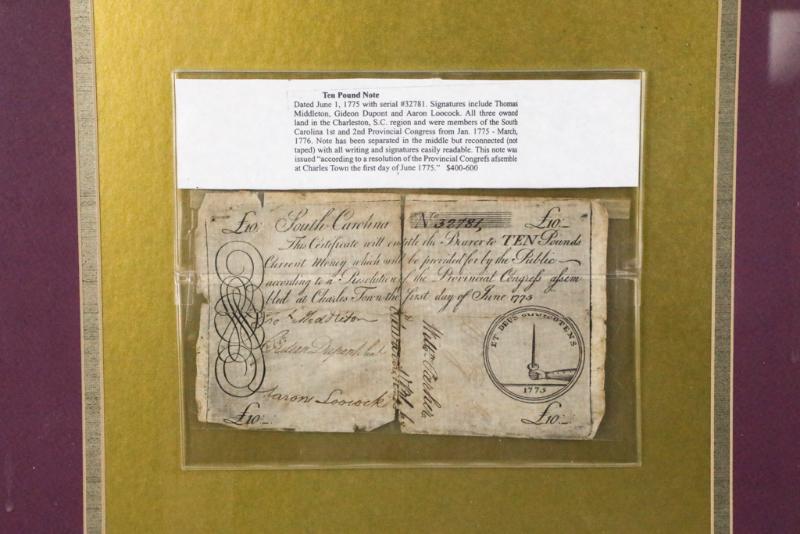 Ten Pound Note
Dated June 1, 1775 with serial #32781. Signatures include Thomas
Middleton, Gideon Dupont and Aaron Loocock. All three owned
land in the Charleston, S.C. region and were members of the South
Carolina 1st and 2nd Provincial Congress from Jan. 1775 - March,
1776. Note has been separated in the middle but reconnected (not
taped) with all writing and signatures easily readable. This note was
issued "according to a resolution of the Provincial Congreſs aſsemble
at Charles Town the first day of June 1775." $400-600
£10:- South-Carolina No. 32781, £10:-
This Certificate will entitle the Bearer to TEN Pounds
Current Money, which will be provided for by the Public
according to a Resolution of the Provincial Congreſs aſsem
bled at Charles Town the first day of June 1775
Thos. Middleton
Gideon Dupont
Aaron Loocock
Willm Parker
ET DEUS OMNIPOTENS
1775
£10:- £10:-